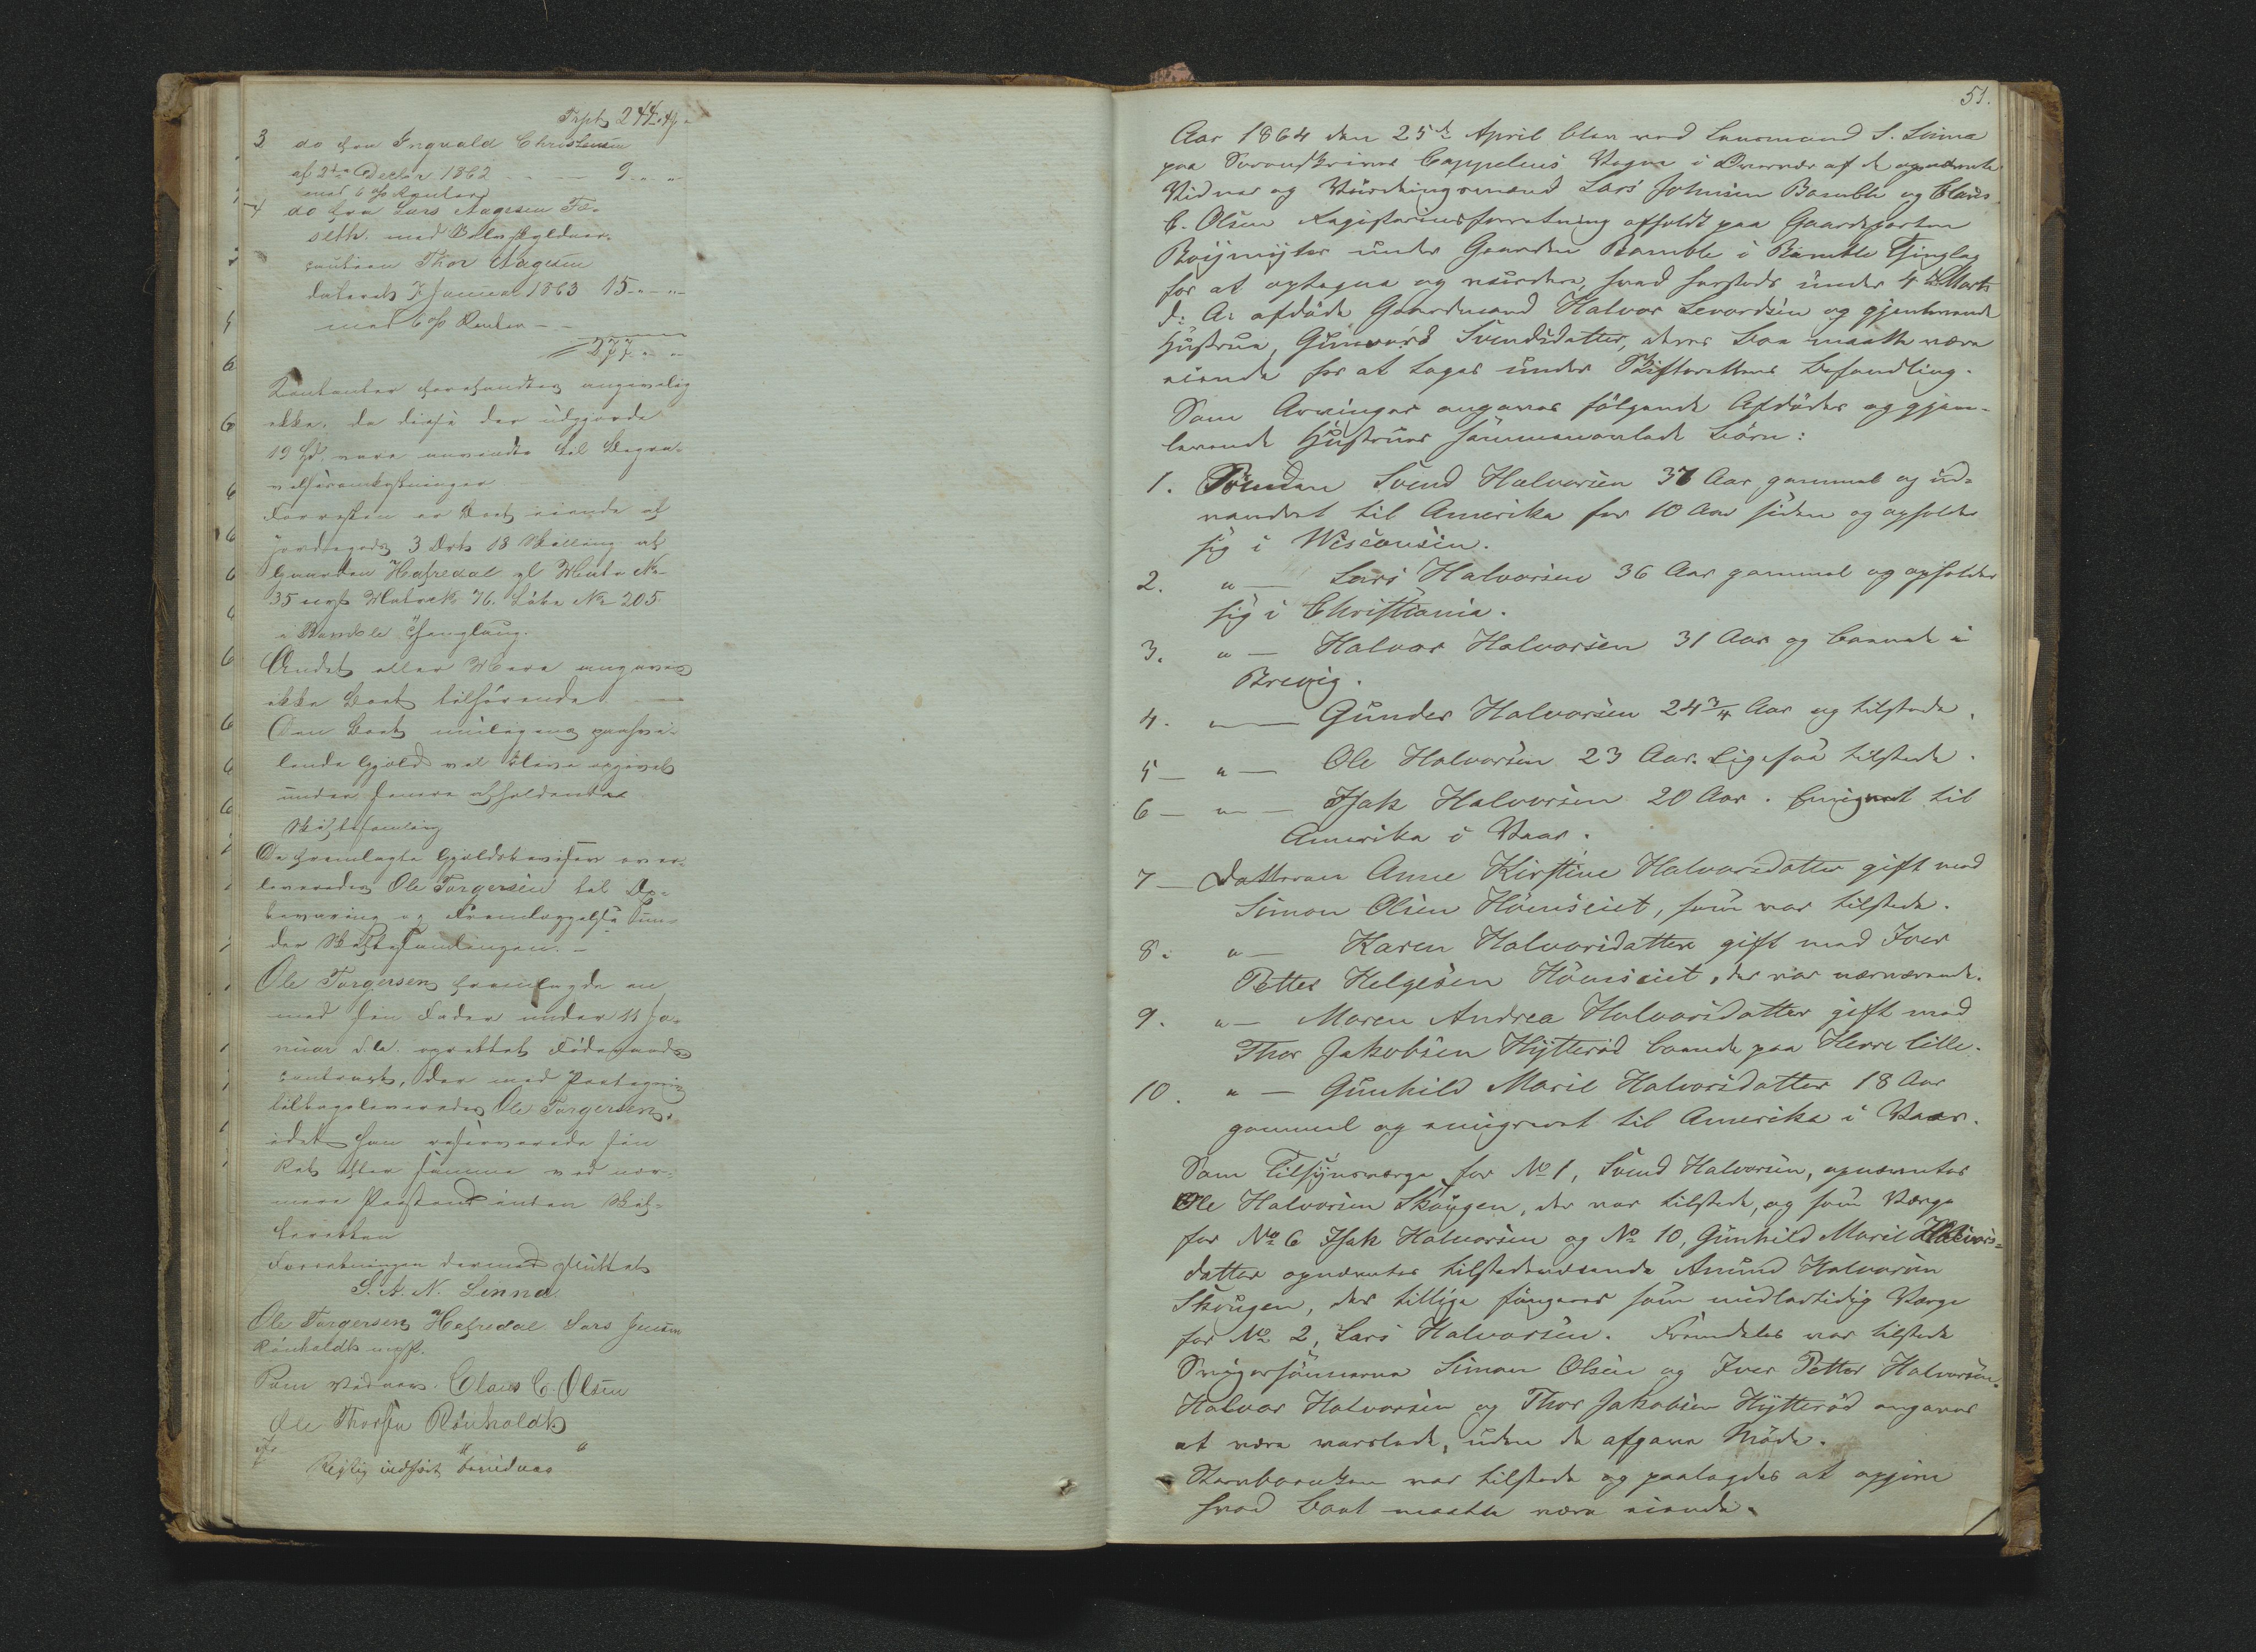 Trspt 244 " 4 "
3 do fra Ingvald Christensen
af 2den Decbr 1862 - - - 9 " "
med 6 % Renter
4 do fra Lars Aagesen
med Selvskyldner-
cautionen Thor Aagesen
dateret 7 Januar 1863 15 " - "
med 6 % Renter - -
277 " "
Contanter forefandtes angivelig
ikke, da disse der udgjorde
19 Spd. vare anvendte til Begra-
velsesomkostninger
Forresten er Boet eiende af
Jordegods 3 Ort 18 Skilling af
Gaarden Hafredal gl Matr No
35 nye Matrok 76. Løbe No 205
i Bamble Thinglaug.
Andet eller Mere angaves
ikke Boet tilhørende
Den Boet muligens paahvi-
lende Gjæld vil blive opgivet
under senere afholdende
Skiftesamling
De fremlagte Gjældsbeviser over-
leveredes Ole Torgersen til Be-
varing og Fremlæggelse un-
der Skiftesamlingen. -
Ole Torgersen fremlagde en
med sin Fader under 11 Ja-
nuar d. A. oprettet Føderaads-
contract, der med Paategning
tilbageleveredes Ole Torgersen,
idet han reserverede sin
Ret efter samme ved nær-
mere Paastand inden Skif-
teretten
Forretningen dermed sluttet
S. A. N. Linna
Ole Torgersen Hafredal Lars Jensen
Rønholdt m/P.
Som Vidner. Claus C. Olsen
Ole Thorsen Rønholdt
Rigtig indført bevidnes
51.
Aar 1864 den 25de April blev ved Lensmand S. Linna
paa Sorenskriver Cappelens Vegne i Overvær af de opnævnte
Vidner og Vurderingsmænd Lars Johnsen Bamble og Claus
C. Olsen Registeringsforretning afholdt paa Gaardeparten
under Gaarden Bamble i Bamble Thinglag
for at optegne og vurdere, hvad forstods under 4de Marts
d. A. afdøde Gaardmand Halvor Levordsen og gjenlevende
Hustrue, Gunvord Svendsdatter, deres Boe maatte være
eiende for at tages under Skifterettens Behandling.
Som Arvinger angaves følgende Afdødes og gjen-
levende Hustrues sammenavlede Børn:
1. Sønnen Svend Halvorsen 37 Aar gammel og ud-
vandret til Amerika for 10 Aar siden og opholder
sig i Wisconsin.
2. " - Lars Halvorsen 36 Aar gammel og opholder
sig i Christiania.
3. " - Halvor Halvorsen 31 Aar og boende i
Brevig.
4. " - Gunder Halvorsen 24 3/4 Aar og tilstede.
5 - " - Ole Halvorsen 23 Aar. Ligesaa tilstede.
6 - " - Isak Halvorsen 20 Aar. Emigreret til
Amerika i Vaar.
7 - Datteren Anne Kirstine Halvorsdatter gift med
Simon Olsen Hønseiet, som var tilstede.
8. " - Karen Halvorsdatter gift med Iver
Petter Helgesen Hønseiet, der var nærværende.
9. " - Maren Andrea Halvorsdatter gift med
Thor Jakobsen Hytterød boende paa Herre lille.
10. " - Gunhild Marie Halvorsdatter 18 Aar
gammel og emigreret til Amerika i Vaar.
Som Tilsynsværge for No 1, Svend Halvorsen, opnævntes
Ole Halvorsen Skougen, der var tilstede, og som Værge
for No 6 Isak Halvorsen og No 10, Gunhild Marie Halvors-
datter opnævntes tilstedeværende Amund Halvorsen
Skougen, der tillige fungerer som midlertidig Værge
for No 2, Lars Halvorsen. Fremdeles var tilstede
Svigersønnerne Simon Olsen og Iver Petter Halvorsen.
Halvor Halvorsen og Thor Jakobsen Hytterød angaves
at være varslede, uden de afgave Møde.
Stervboenken var tilstede og paalagdes at opgive
hvad Boet maatte være eiende.